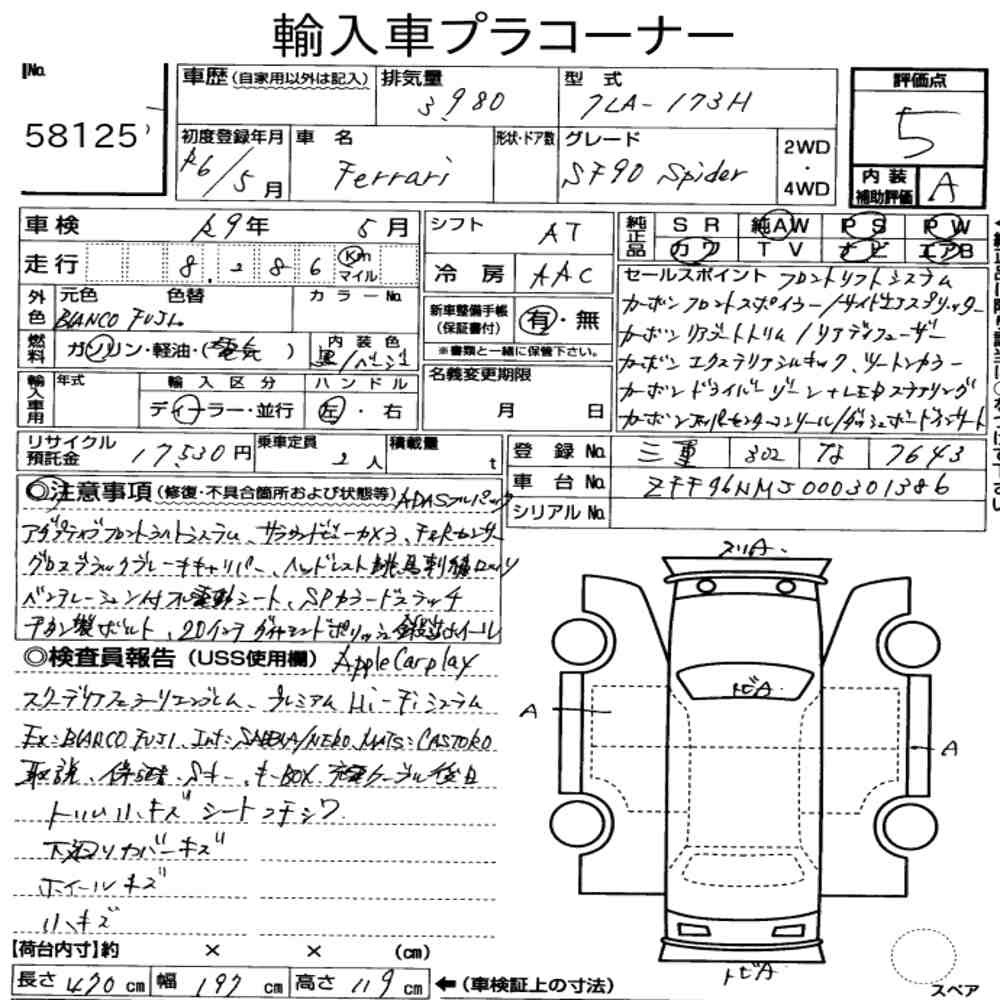 輸入車プラコーナー
No.
58125
車歴 (自家用以外は記入)
排気量
3,980
型 式
7LA-173H
評価点
5
初度登録年月
R6/5月
車 名
Ferrari
形状・ドア数
グレード
SF90 Spider
2WD
・
4WD
内 装
補助評価
A
車検 R9年 5月
走行 8,286 Km
マイル
シフト AT
冷 房 AAC
純正品
SR 純AW PS PW
カワ TV ナビ エアB
外色
元色 色替 カラーNo.
BIANCO FUJI
新車整備手帳
(保証書付)
有・無
※書類と一緒に保管下さい。
燃料
ガソリン・軽油・(電気)
内装色
黒/ベージュ
輸入車用
年式
輸入区分
ディーラー・並行
ハンドル
左・右
名義変更期限
月 日
セールスポイント フロントリフトシステム
カーボンフロントスポイラー/サイドエアスプリッター
カーボンリアブートトリム/リアディフューザー
カーボンエクステリアシルキック、ツートンカラー
カーボンドライバーゾーン+LEDステアリング
リサイクル
預託金
17,530円
乗車定員
2人
積載量
t
登 録 No. 三重 302 な 7643
車 台 No. ZFF96NMJ000301386
シリアルNo.
◎注意事項 (修復・不具合箇所および状態等) ADASフルパック
アダプティブフロントライトシステム、サラウンドビューカメラ、F&Rセンサー
グロスブラックブレーキキャリパー、ヘッドレスト跳馬刺繍
ベンチレーション付フル電動シート、SPカラードステッチ
チタン製ボルト、20インチダイヤモンドポリッシュ鍛造ホイール
◎検査員報告 (USS使用欄) Apple Carplay
スクーデリアフェラーリエンブレム、プレミアムHi-Fiシステム
Ex:BIANCO FUJI、Int:SABBIA/NERO、MATS:CASTORO
取説、保証書、Sキー、キーBOX、充電ケーブル後日
トリム小キズ シートコテシワ
下廻りカバーキズ
ホイールキズ
小キズ
スリA
トビA
A
A
トビA
スペア
【荷台内寸】約 × × (cm)
長さ 470 cm 幅 197 cm 高さ 119 cm ←(車検証上の寸法)